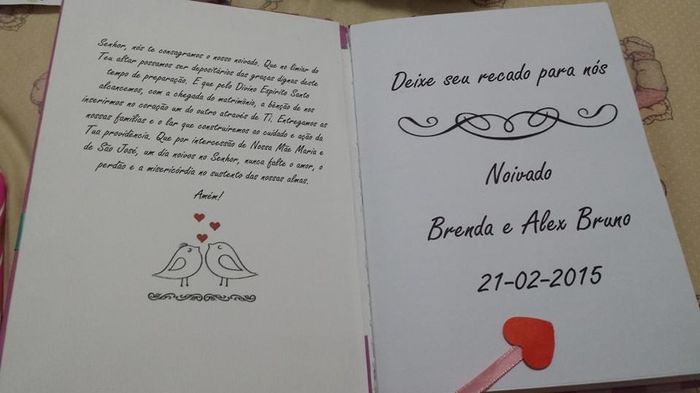 Senhor, nós te consagramos o nosso noivado. Que no limiar do
Teu altar possamos ser depositários das graças dignas deste
tempo de preparação. E que pelo Divino Espírito Santo
alcancemos, com a chegada do matrimônio, a bênção de nos
inserirmos no coração um do outro através de Ti. Entregamos as
nossas famílias e o lar que construiremos ao cuidado e ação da
Tua providência. Que por intercessão de Nossa Mãe Maria e
de São José, um dia noivos no Senhor, nunca falte o amor, o
perdão e a misericórdia no sustento das nossas almas.
Amém!
Deixe seu recado para nós
Noivado
Brenda e Alex Bruno
21-02-2015